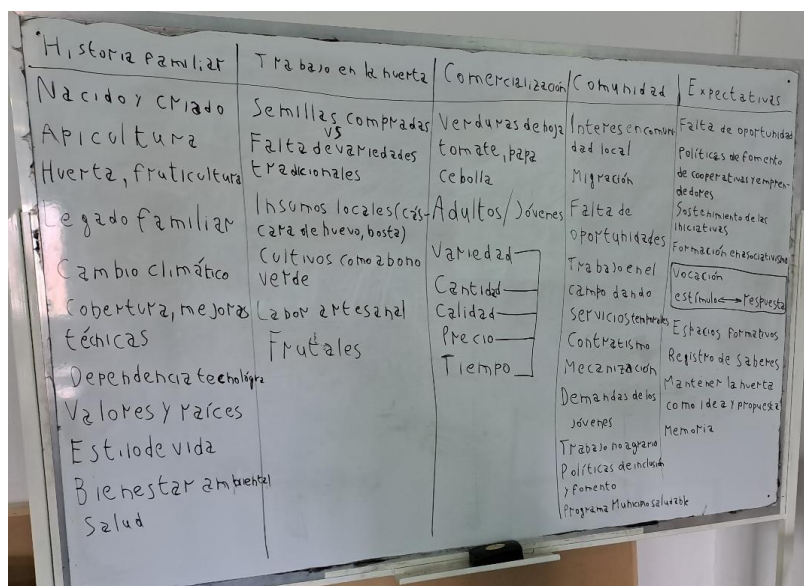 Historia familiar
Nacido y criado
Apicultura
Huerta, fruticultura
Legado familiar
Cambio climático
Cobertura, mejoras
técnicas
Dependencia tecnológica
Valores y raíces
Estilo de vida
Bienestar ambiental
Salud
Trabajo en la huerta
Semillas compradas
vs
Falta de variedades
tradicionales
Insumos locales (cás-
cara de huevo, bosta)
Cultivos como abono
verde
Labor artesanal
Frutales
Comercialización
Verduras de hoja
tomate, papa
cebolla
Adultos/Jóvenes
Variedad
Cantidad
Calidad
Precio
Tiempo
Comunidad
Interes en comuni
dad local
Migración
Falta de
oportunidades
Trabajo en el
campo dando
servicios temporales
Contratismo
Mecanización
Demandas de los
jóvenes
Trabajo no agrario
Políticas de inclusión
y fomento
Programa Municipio saludable
Expectativas
Falta de oportunidad
Políticas de fomento
de cooperativas y empren-
dedores
Sostenimiento de las
iniciativas
Formación en asociativismo
Vocación
estímulo ↔ respuesta
Espacios formativos
Registro de saberes
Mantener la huerta
como idea y propuesta
Memoria